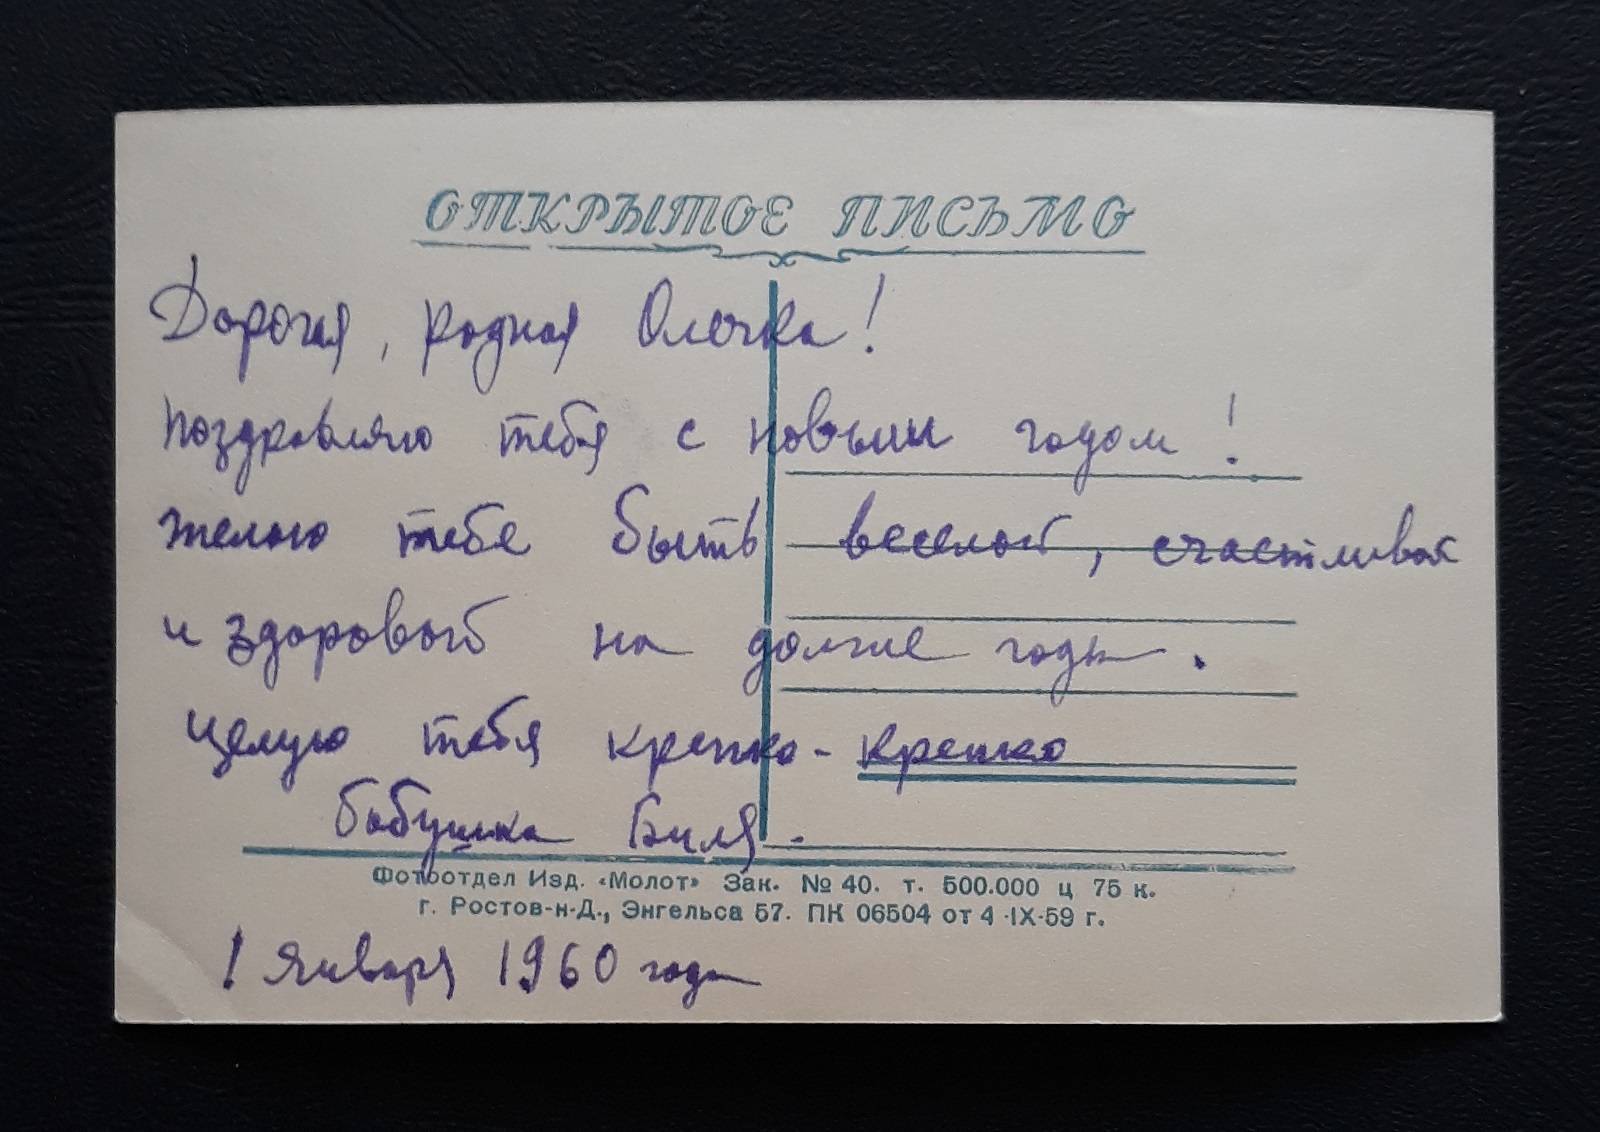 ОТКРЫТОЕ ПИСЬМО
Дорогая, родная Олечка!
поздравляю тебя с новым годом!
желаю тебе быть веселой, счастливой
и здоровой на долгие годы.
целую тебя крепко-крепко
бабушка Биля.
Фотоотдел Изд. «Молот» Зак. № 40. т. 500.000 ц 75 к.
г. Ростов-н-Д., Энгельса 57. ПК 06504 от 4-IX-59 г.
1 Января 1960 года